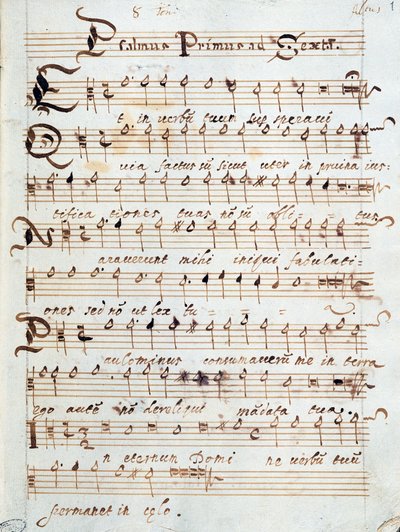 8 Toni Altus 1
Psalmus Primus ad Sextā.
Et in verbū tuum sup speravi
Quia factus sū sicut uter in pruina ius:
tificationes tuas nō sū obli - - tus
Naraverunt mihi iniqui fabulati-
ones sed nō ut lex tu - - - - a
Paulominus consumaverū me in terra
ego autē nō dereliqui mādata tua
In eternun Domi ne verbū tuū
permanet in celo.